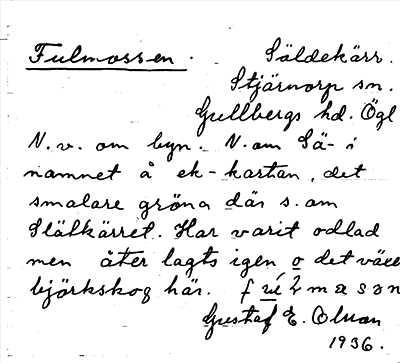 Fulmossen. Säldekärr.
Stjärnorp sn.
Gullbergs hd. Ögl
N.v. om byn. N. om Sä- i
namnet å ek-kartan, det
smalare gröna där s. om
Slätkärret. Har varit odlad
men åter lagts igen o det växer
björkskog här.
Gustaf E. Olman
1936.